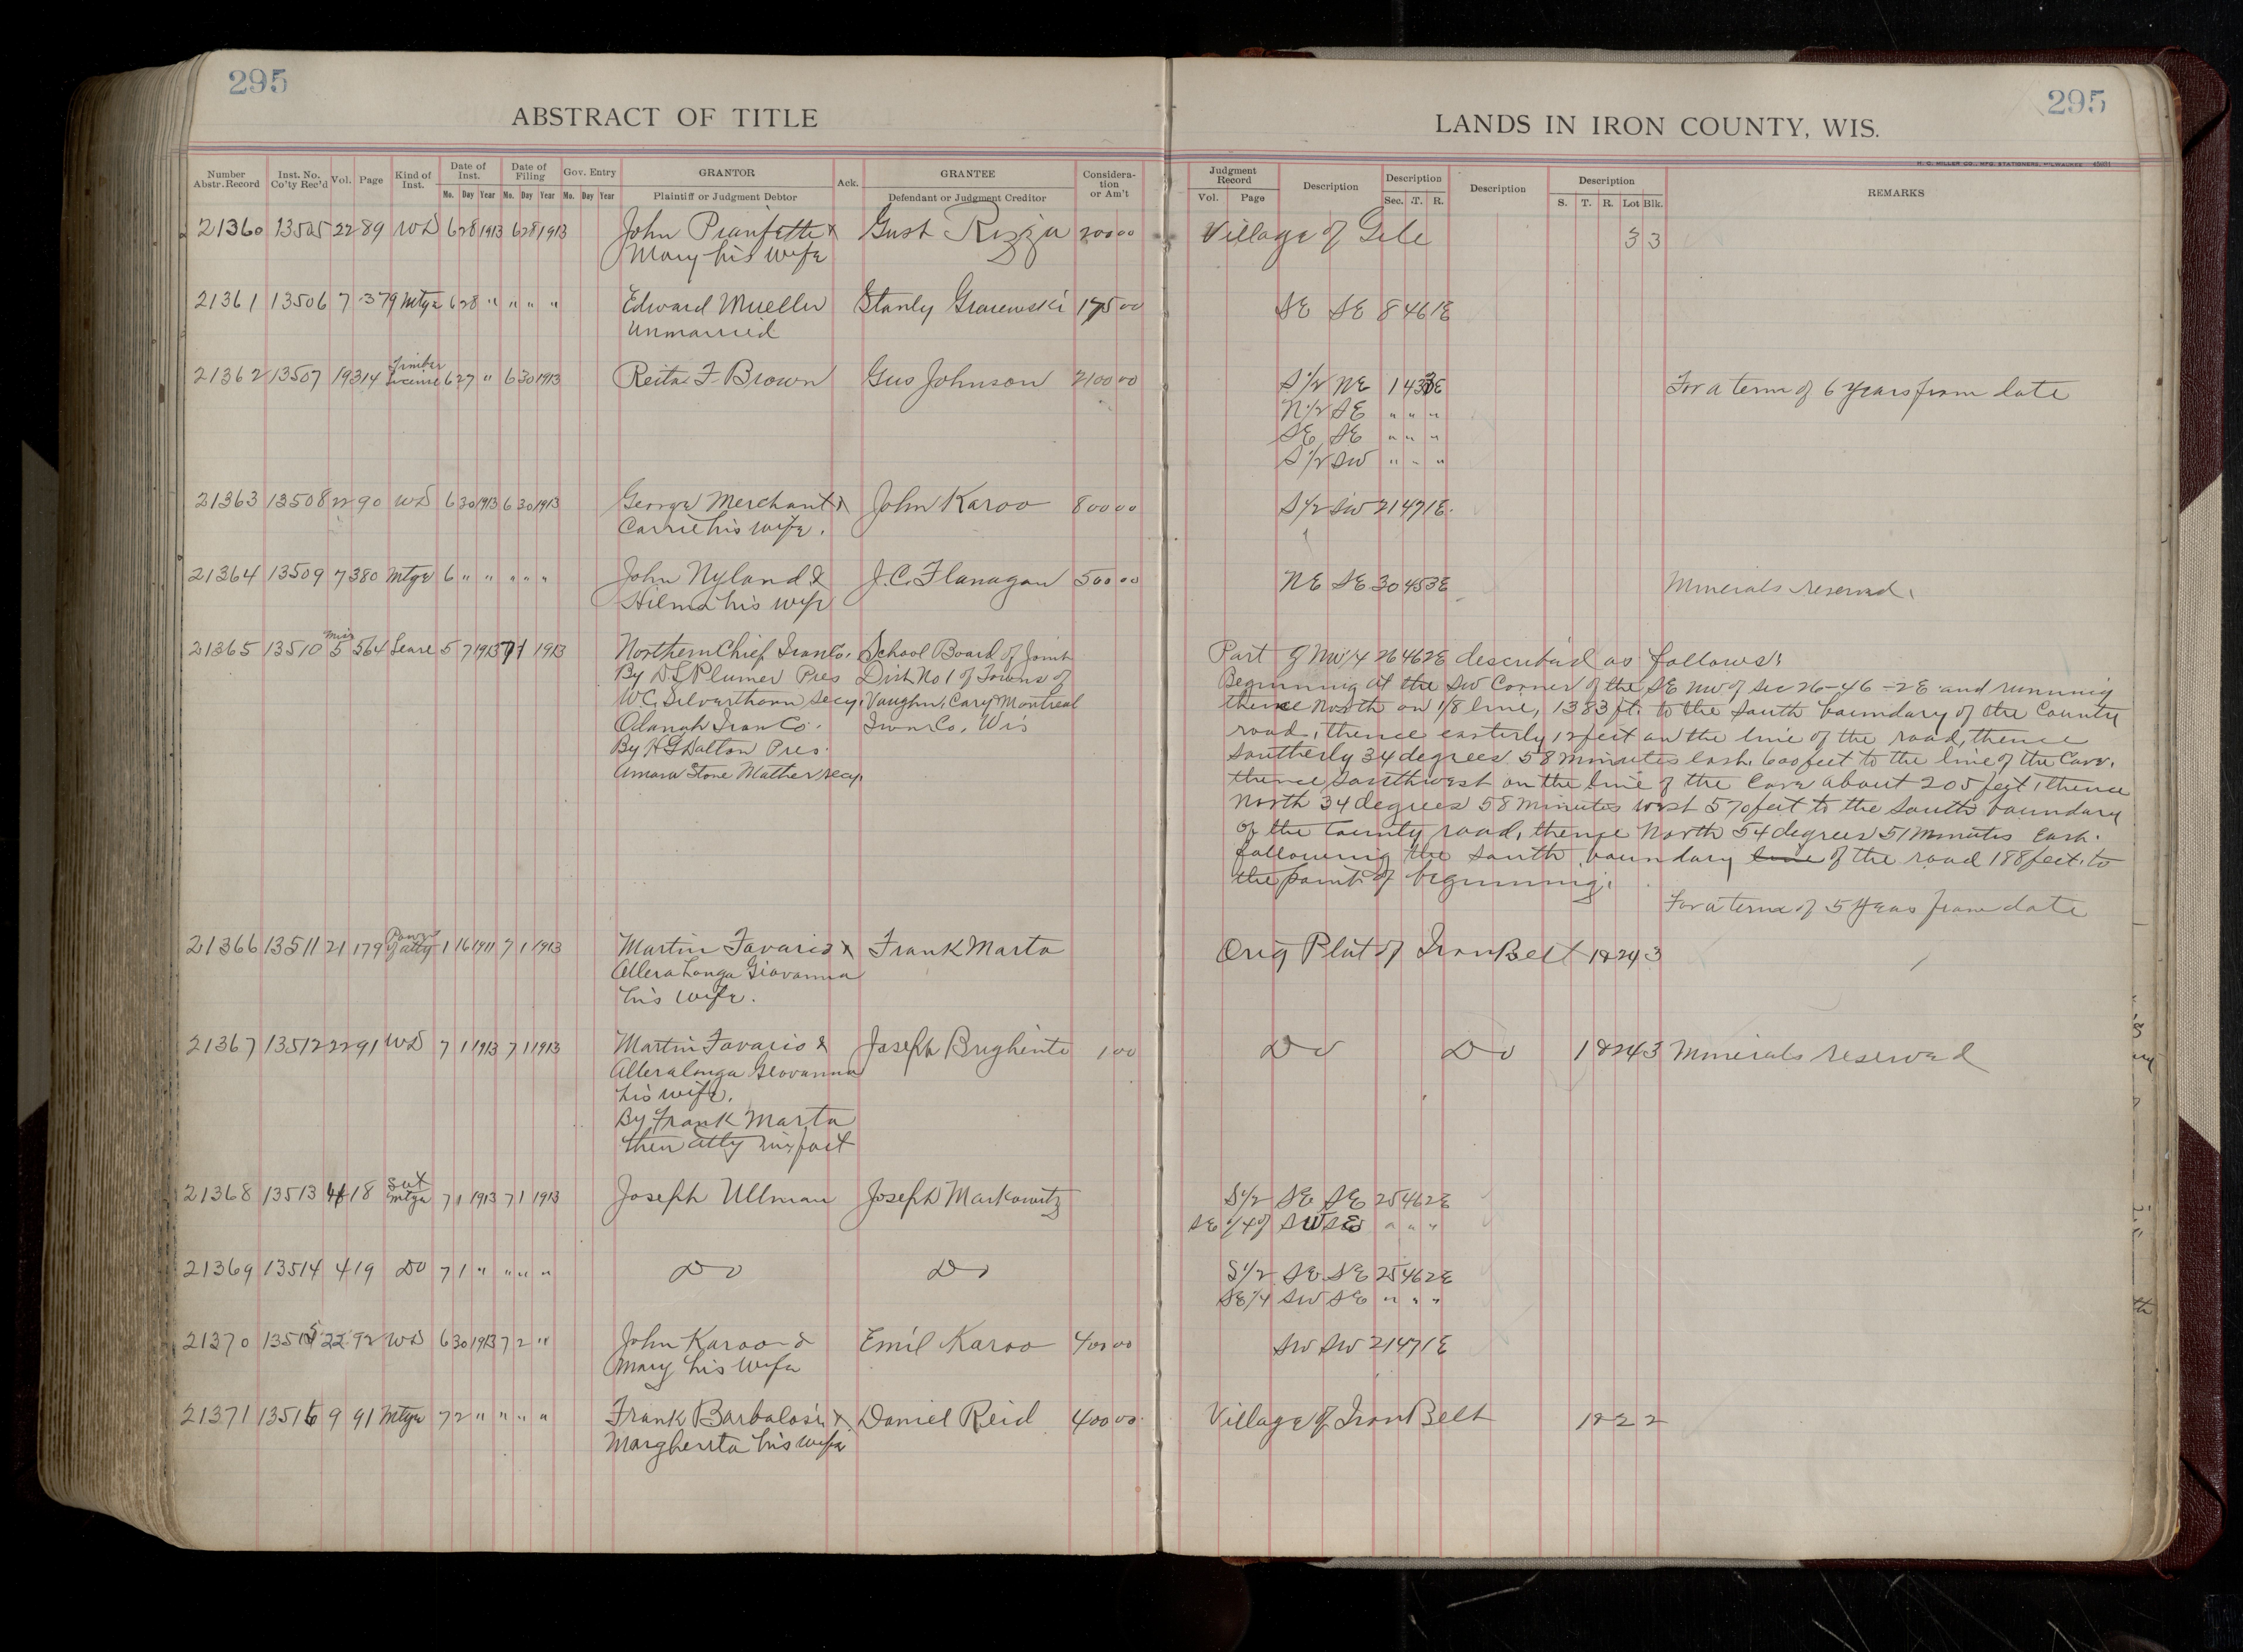 295
ABSTRACT OF TITLE
Number Abstr. Record | Inst. No. Co'ty Rec'd | Vol. | Page | Kind of Inst. | Date of Inst. Mo. Day Year | Date of Filing Mo. Day Year | Gov. Entry Mo. Day Year | GRANTOR Plaintiff or Judgment Debtor | Ack. | GRANTEE Defendant or Judgment Creditor | Consideration or Am't
21360 13505 22 89 WD 6 28 1913 6 28 1913 John & Gust Rizzu 200 00
Mary his wife
21361 13506 7 379 Mtge 6 28 " " " " Edward Mueller Stanly 175 00
Unmarried
21362 13507 19 314 Timber License 6 27 " 6 30 1913 Reita F. Brown Gus Johnson 2100 00
21363 13508 22 90 WD 6 30 1913 6 30 1913 George Merchant & John Karoo 800 00
Carrie his wife.
21364 13509 7 380 Mtge 6 " " " " " John Nyland & J. C. Flanagan 500 00
Hilma his wife
21365 13510 Misc 5 564 Lease 5 7 1913 7 1 1913 Northern Chief Iron Co. School Board of Joint
By D L Plumer Pres Dist No 1 of Towns of
W. C. Silverthorn Secy. Vaughn, Cary & Montreal
Odanah Iron Co. Iron Co. Wis
By H G Dalton Pres.
Amasa Stone Mather Secy.
21366 13511 21 179 Power of atty 1 16 1911 7 1 1913 Martin Favario & Frank Marta
Alleralonga Giovanna
his wife.
21367 13512 22 91 WD 7 1 1913 7 1 1913 Martin Favario & Joseph Brighente 1 00
Alleralonga Geovanna
his wife.
By Frank Marta
their atty in fact
21368 13513 4 18 Sat Mtge 7 1 1913 7 1 1913 Joseph Ullman Joseph Markowitz
21369 13514 4 19 Do 7 1 " " " " Do Do
21370 13515 22 92 WD 6 30 1913 7 2 " John Karoo & Emil Karoo 400 00
Mary his wife
21371 13516 9 91 Mtge 7 2 " " " " Frank Barbalosi & Daniel Reid 400 00
Margherita his wife
295
LANDS IN IRON COUNTY, WIS.
H. C. MILLER CO., MFG. STATIONERS, MILWAUKEE
Judgment Record Vol. Page | Description | Description Sec. T. R. | Description | Description S. T. R. Lot Blk. | REMARKS
Village of Gile 3 3
SE SE 8 46 1E
S 1/2 NE 1 43 3E For a term of 6 years from date
N 1/2 SE " " "
SE SE " " "
S 1/2 SW " " "
S 1/2 SW 21 47 1E
NE SE 30 45 3E Minerals reserved.
Part of NW 1/4 26 46 2E described as follows:
Beginning at the SW Corner of the SE NW of Sec 26-46-2E and running
thence North on 1/8 line, 1383 ft. to the South boundary of the County
road, thence easterly 12 feet on the line of the road, thence
Southerly 34 degrees 58 minutes East. 600 feet to the line of the Cave.
thence Southwest on the line of the Cave about 205 feet, thence
North 34 degrees 58 minutes west 570 feet to the South boundary
of the County road, thence North 54 degrees 51 minutes East.
following the South boundary line of the road 188 feet to
the point of beginning.
For a term of 5 Years from date
Orig Plat of Iron Belt 12 24 3
Do Do 12 24 3 Minerals reserved
S 1/2 SE SE 25 46 2E
SE 1/4 of SW SE " " "
S 1/2 SE SE 25 46 2E
SE 1/4 SW SE " " "
SW SW 21 47 1E
Village of Iron Belt 12 2